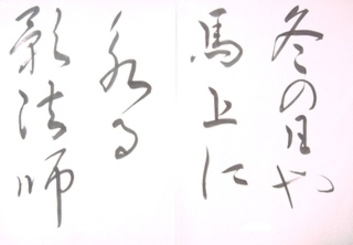 冬の日や
馬上に
氷る
影法師